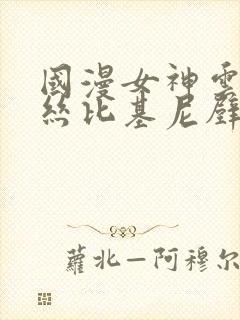 國漫女神雲
絲比基尼壁
蘿北—阿穆尔